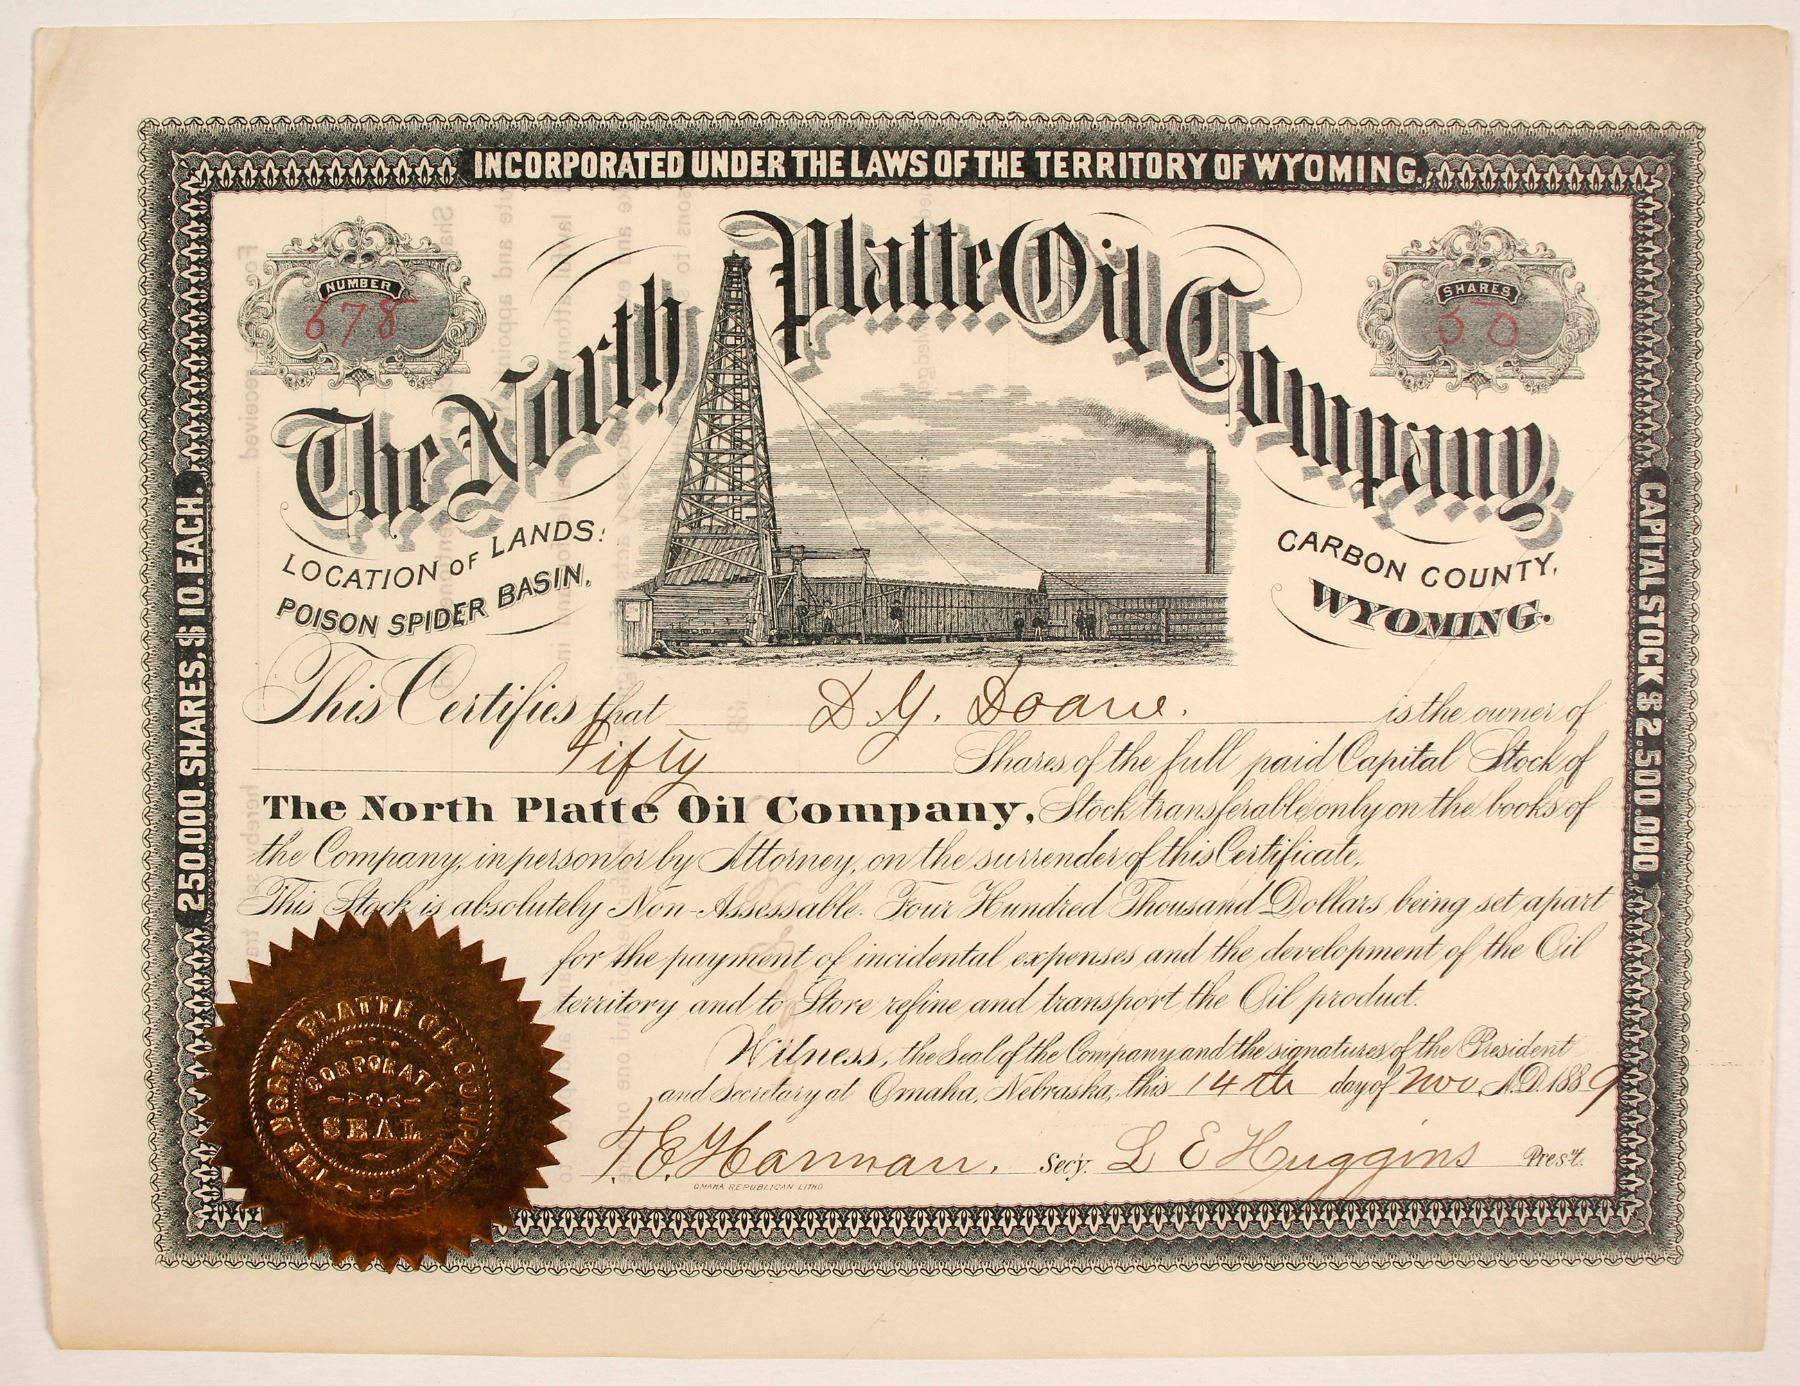 INCORPORATED UNDER THE LAWS OF THE TERRITORY OF WYOMING.
NUMBER
678
SHARES
50
The North Platte Oil Company,
LOCATION OF LANDS:
POISON SPIDER BASIN,
CARBON COUNTY,
WYOMING.
250.000. SHARES, $10. EACH.
CAPITAL STOCK $2.500.000.
This Certifies that D. Y. Doane. is the owner of
Fifty Shares of the full paid Capital Stock of
The North Platte Oil Company, Stock transferable only on the books of
the Company, in person or by Attorney, on the surrender of this Certificate.
This Stock is absolutely Non-Assessable. Four Hundred Thousand Dollars being set apart
for the payment of incidental expenses and the development of the Oil
territory and to Store refine and transport the Oil product.
Witness, the Seal of the Company and the signatures of the President
and Secretary at Omaha, Nebraska, this 14th day of Nov. A.D. 1889
T. E. Harman. Secy. L E Huggins Prest.
OMAHA REPUBLICAN LITHO
THE NORTH PLATTE OIL COMPANY
CORPORATE
SEAL